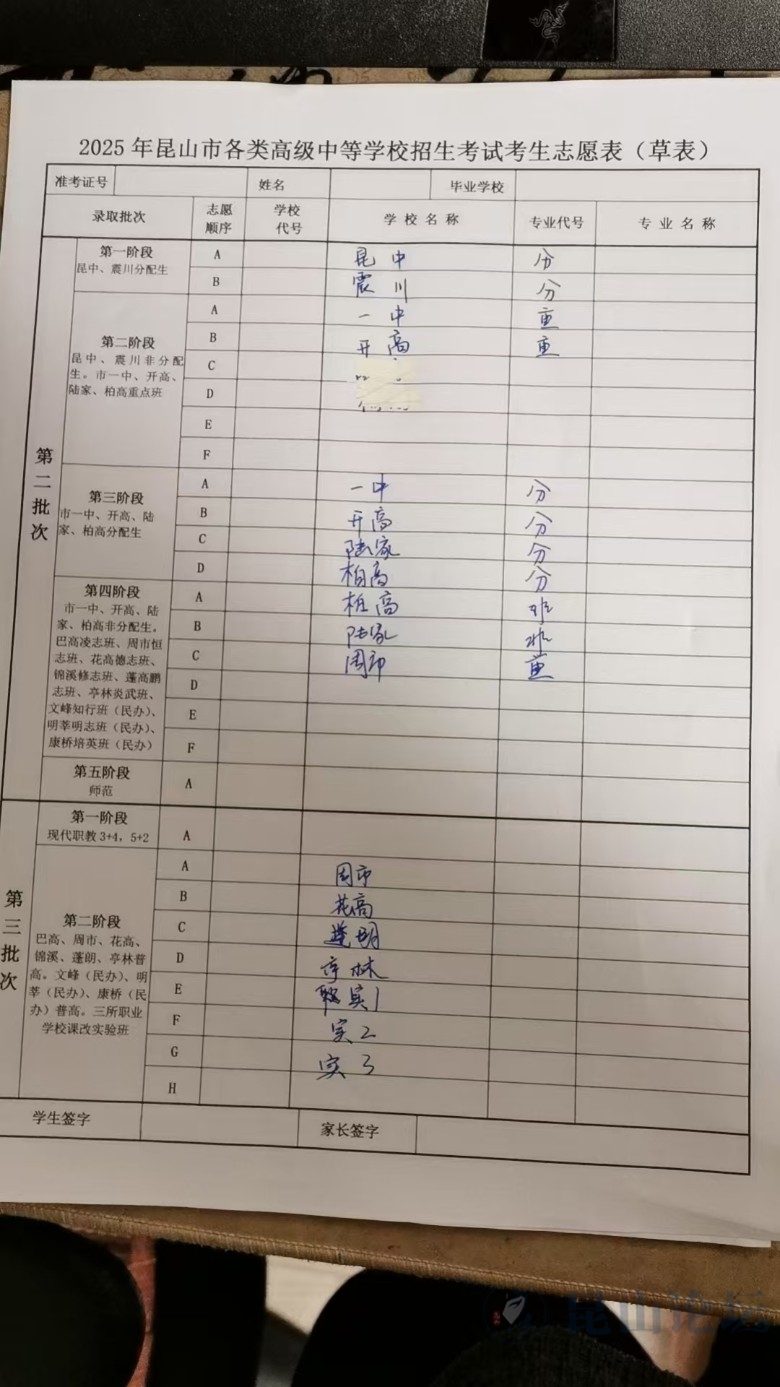 2025年昆山市各类高级中等学校招生考试考生志愿表（草表）
准考证号 姓名 毕业学校
录取批次 志愿顺序 学校代号 学校名称 专业代号 专业名称
第二批次
第一阶段
昆中、震川分配生
A 昆中 分
B 震川 分
第二阶段
昆中、震川非分配
生。市一中、开高、
陆家、柏高重点班
A 一中 重
B 开高 重
C
D
E
F
第三阶段
市一中、开高、陆
家、柏高分配生
A 一中 分
B 开高 分
C 陆家 分
D 柏高 分
第四阶段
市一中、开高、陆
家、柏高非分配生。
巴高凌志班、周市恒
志班、花高德志班、
锦溪修志班、蓬高鹏
志班、亭林炎武班、
文峰知行班（民办）、
明莘明志班（民办）、
康桥培英班（民办）
A 柏高 非
B 陆家 非
C 周市 重
D
E
F
第五阶段
师范
A
第三批次
第一阶段
现代职教3+4，5+2
A
第二阶段
巴高、周市、花高、
锦溪、蓬朗、亭林普
高。文峰（民办）、明
莘（民办）、康桥（民
办）普高。三所职业
学校课改实验班
A 周市
B 花高
C 蓬朗
D 亭林
E 实1
F 实2
G 实3
H
学生签字 家长签字
昆山论坛